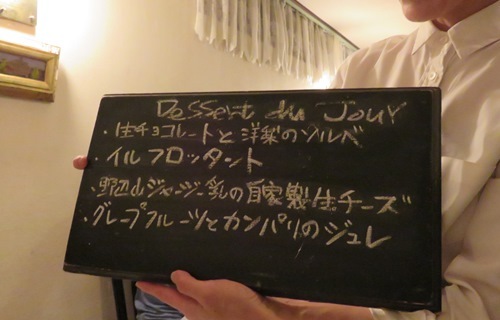 Dessert du Jour
・生チョコレートと洋梨のソルベ
・イルフロッタント
・野辺山ジャージー乳の自家製生チーズ
・グレープフルーツとカンパリのジュレ